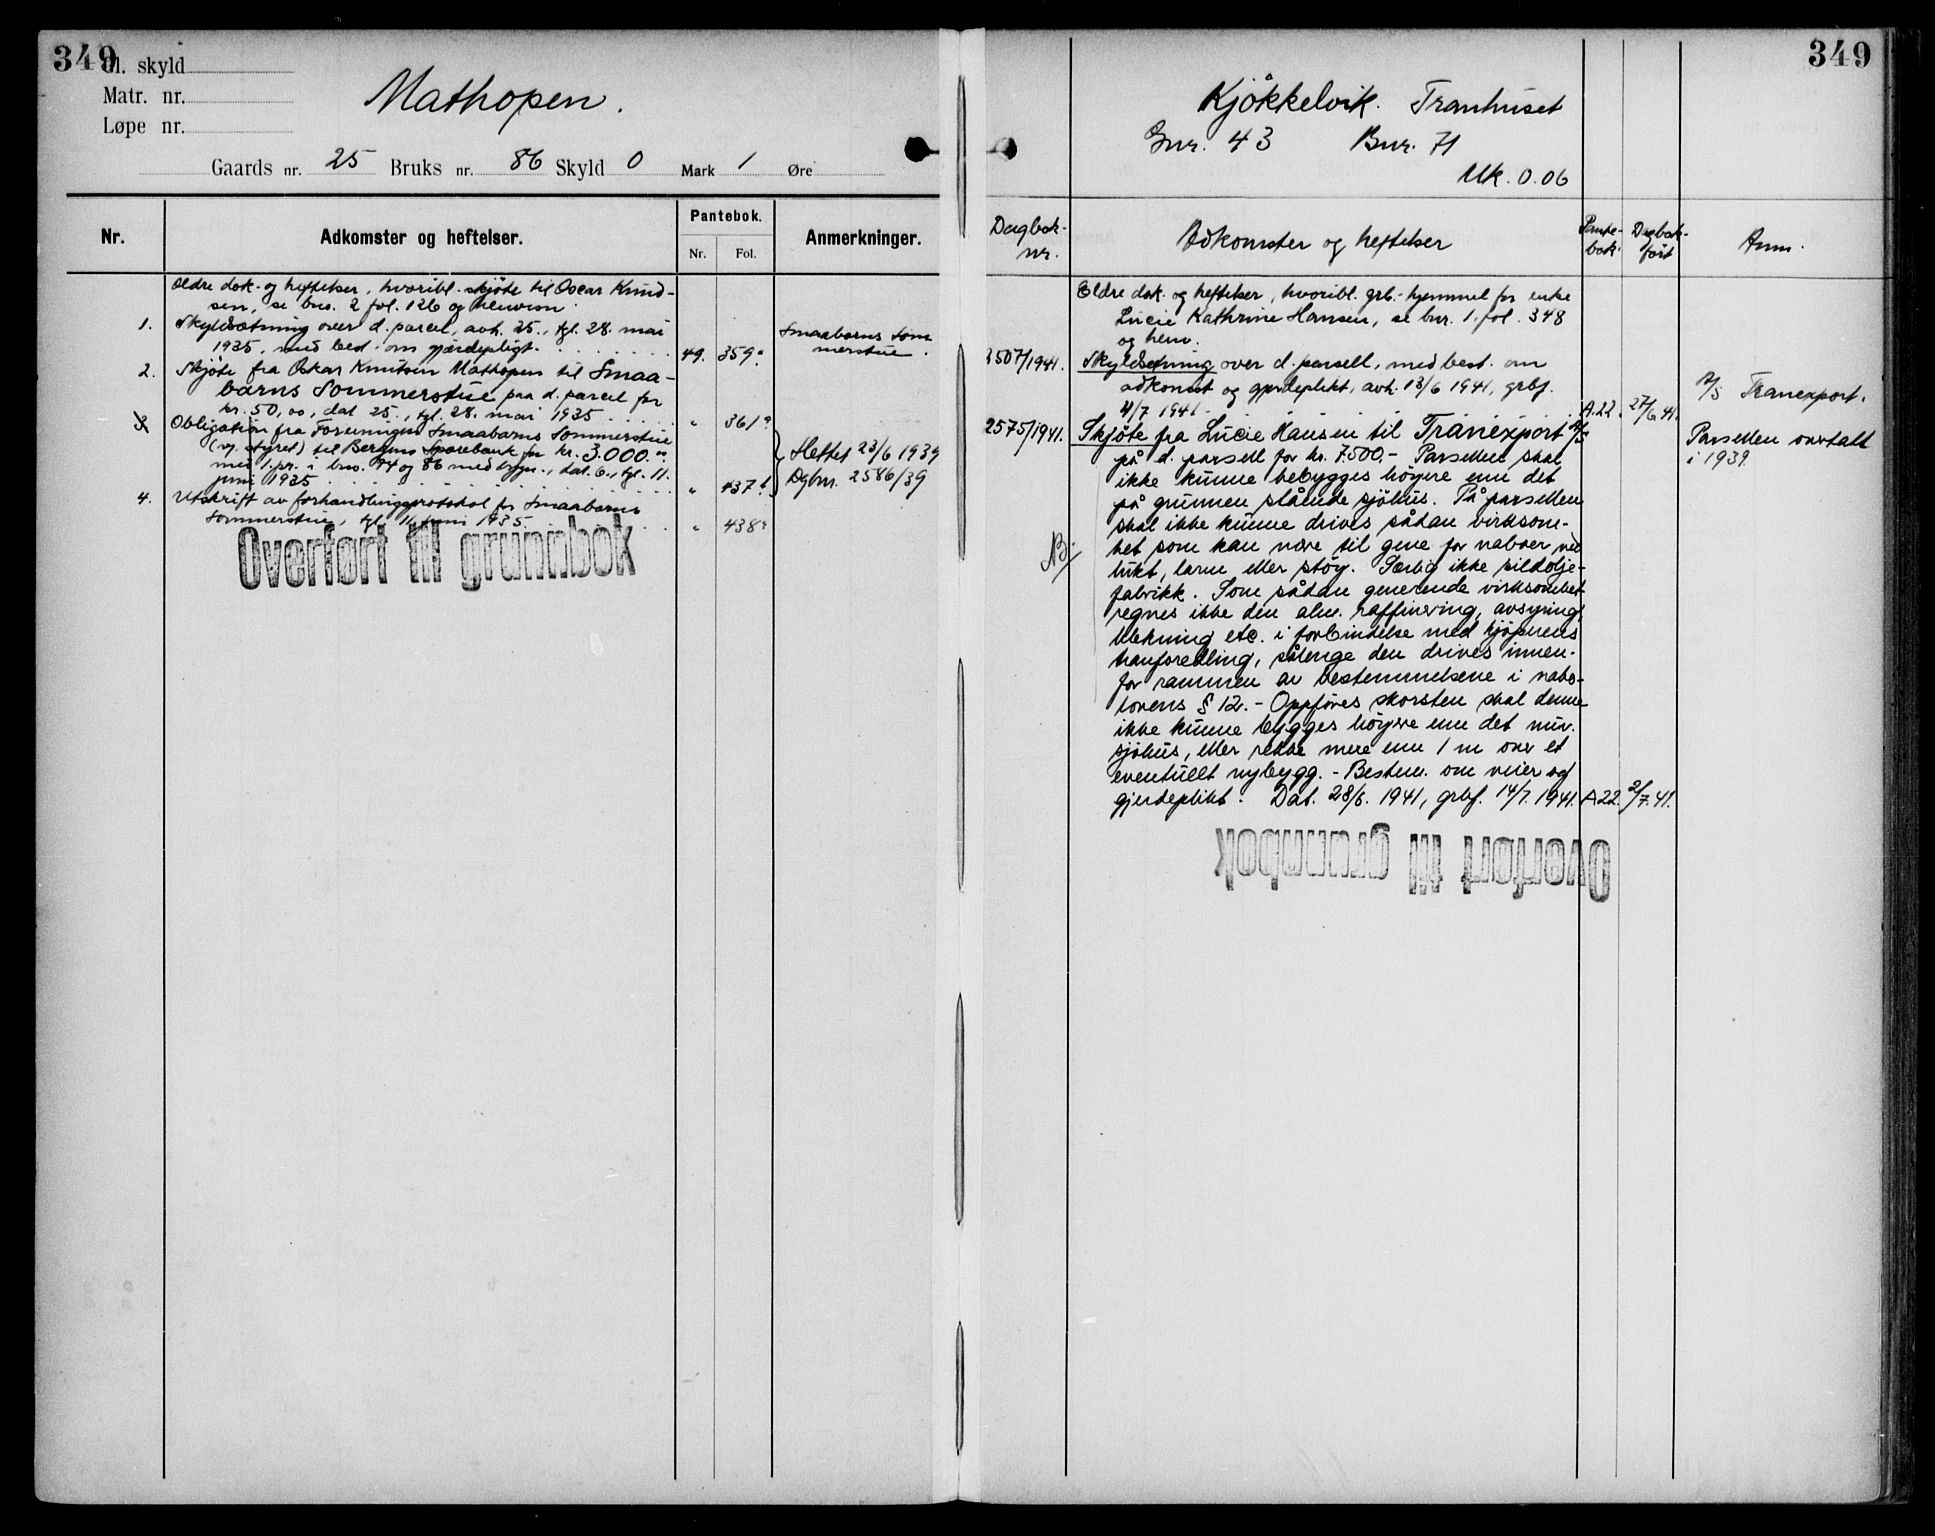 349
Gl. skyld
Matr. nr.
Løpe nr.
Mathopen.
Gaards nr. 25 Bruks nr. 86 Skyld 0 Mark 1 Øre
Nr.
Adkomster og heftelser.
Pantebok.
Nr. Fol.
Anmerkninger.
Eldre dok. og heftelser, hvoribl. skjöte til Oscar Knud-
sen, se bno. 2 fol. 126 og henvisn.
1. Skyldsætning over d. parcel, avh. 25., tgl. 28. mai
1935, med bed. om gjærdepligt. 49. 359a
Smaabarns Som
merstue.
2. Skjöte fra Oskar Knutsen Mathopen til Smaa-
barns Sommerstue paa d. parcel for
kr. 50,00, dat 25., tgl. 28. mai 1935 " 361a
3. Obligation fra Foreningen Smaabarns Sommerstue
(v. styret) til Bergens Sparebank for kr. 3.000.00
med 1. pr. i bno. 74 og 86 med bygn., dat. 6., tgl. 11.
juni 1935 " 437b
Slettet 23/6 1939
Dgbnr. 2586/39
4. Utskrift av forhandlingsprotokol for Smaabarns
Sommerstue, tgl. 11 juni 1935. " 438a
Overført til grunnbok
349
Kjökkelvik. Tranhuset
Gnr. 43 Bnr. 71
Mk. 0.06
Dagbok-
nr.
Adkomster og heftelser
Pante-
bok
Dagbok-
ført
Anm.
Eldre dok. og heftelser, hvoribl. grb.-hjemmel for enke
Lucie Kathrine Hansen, se bnr. 1. fol. 348
og henv.
2507/1941. Skyldsetning over d. parsell, med best. om
adkomst og gjerdeplikt, avh. 13/6 1941, grbf.
4/7 1941. A.22. 27/6.41.
A/S Tranexport.
2575/1941. Skjöte fra Lucie Hansen til Tranexport A/S
Parsellen overtatt
i 1939.
på d. parsell for kr. 7.500.- Parsellen skal
ikke kunne bebygges höyere enn det
på grunnen stående sjöhus. På parsellen
skal ikke kunne drives sådan virksom-
het som kan være til gene for naboer ved
NB!
lukt, larm eller stöy. Særlig ikke sildolje-
fabrikk. Som sådan generende virksomhet
regnes ikke den alm. raffinering, avsyring,
blekning etc. i forbindelse med kjöperens
tranforedling, sålenge den drives innen-
for rammen av bestemmelsene i nabo-
lovens § 12. - Oppföres skorsten skal denne
ikke kunne bygges höyere enn det nuv.
sjöhus, eller rekke mere enn 1 m over et
eventuellt nybygg. - Bestem. om veier og
gjerdeplikt. Dat. 28/6. 1941, grbf. 14/7. 1941. A22. 2/7.41.
Overført til grunnbok